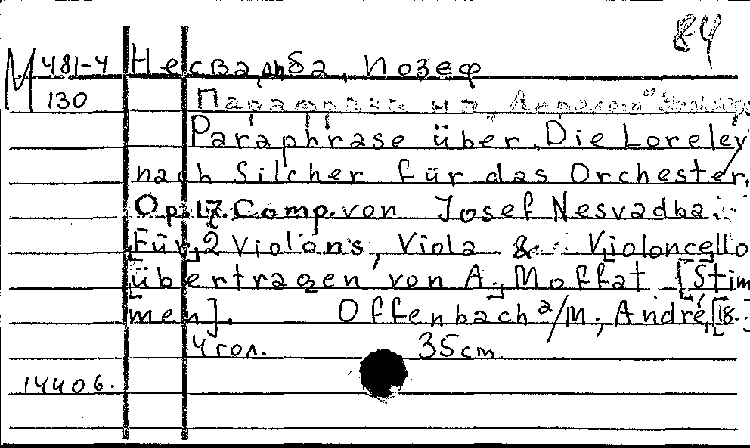 84
М 481-4 Несвадба, Иозеф
130 Парафраз на „Лорелей"
Paraphrase über „Die Loreley"
nach Silcher für das Orchester.
Op. 17. Comp. von Josef Nesvadba.
Für 2 Violons, Viola & Violoncello
übertragen von A. Moffat [Stim
men]. Offenbach a/M., André, [18..]
4 гол. 35cm.
14406.